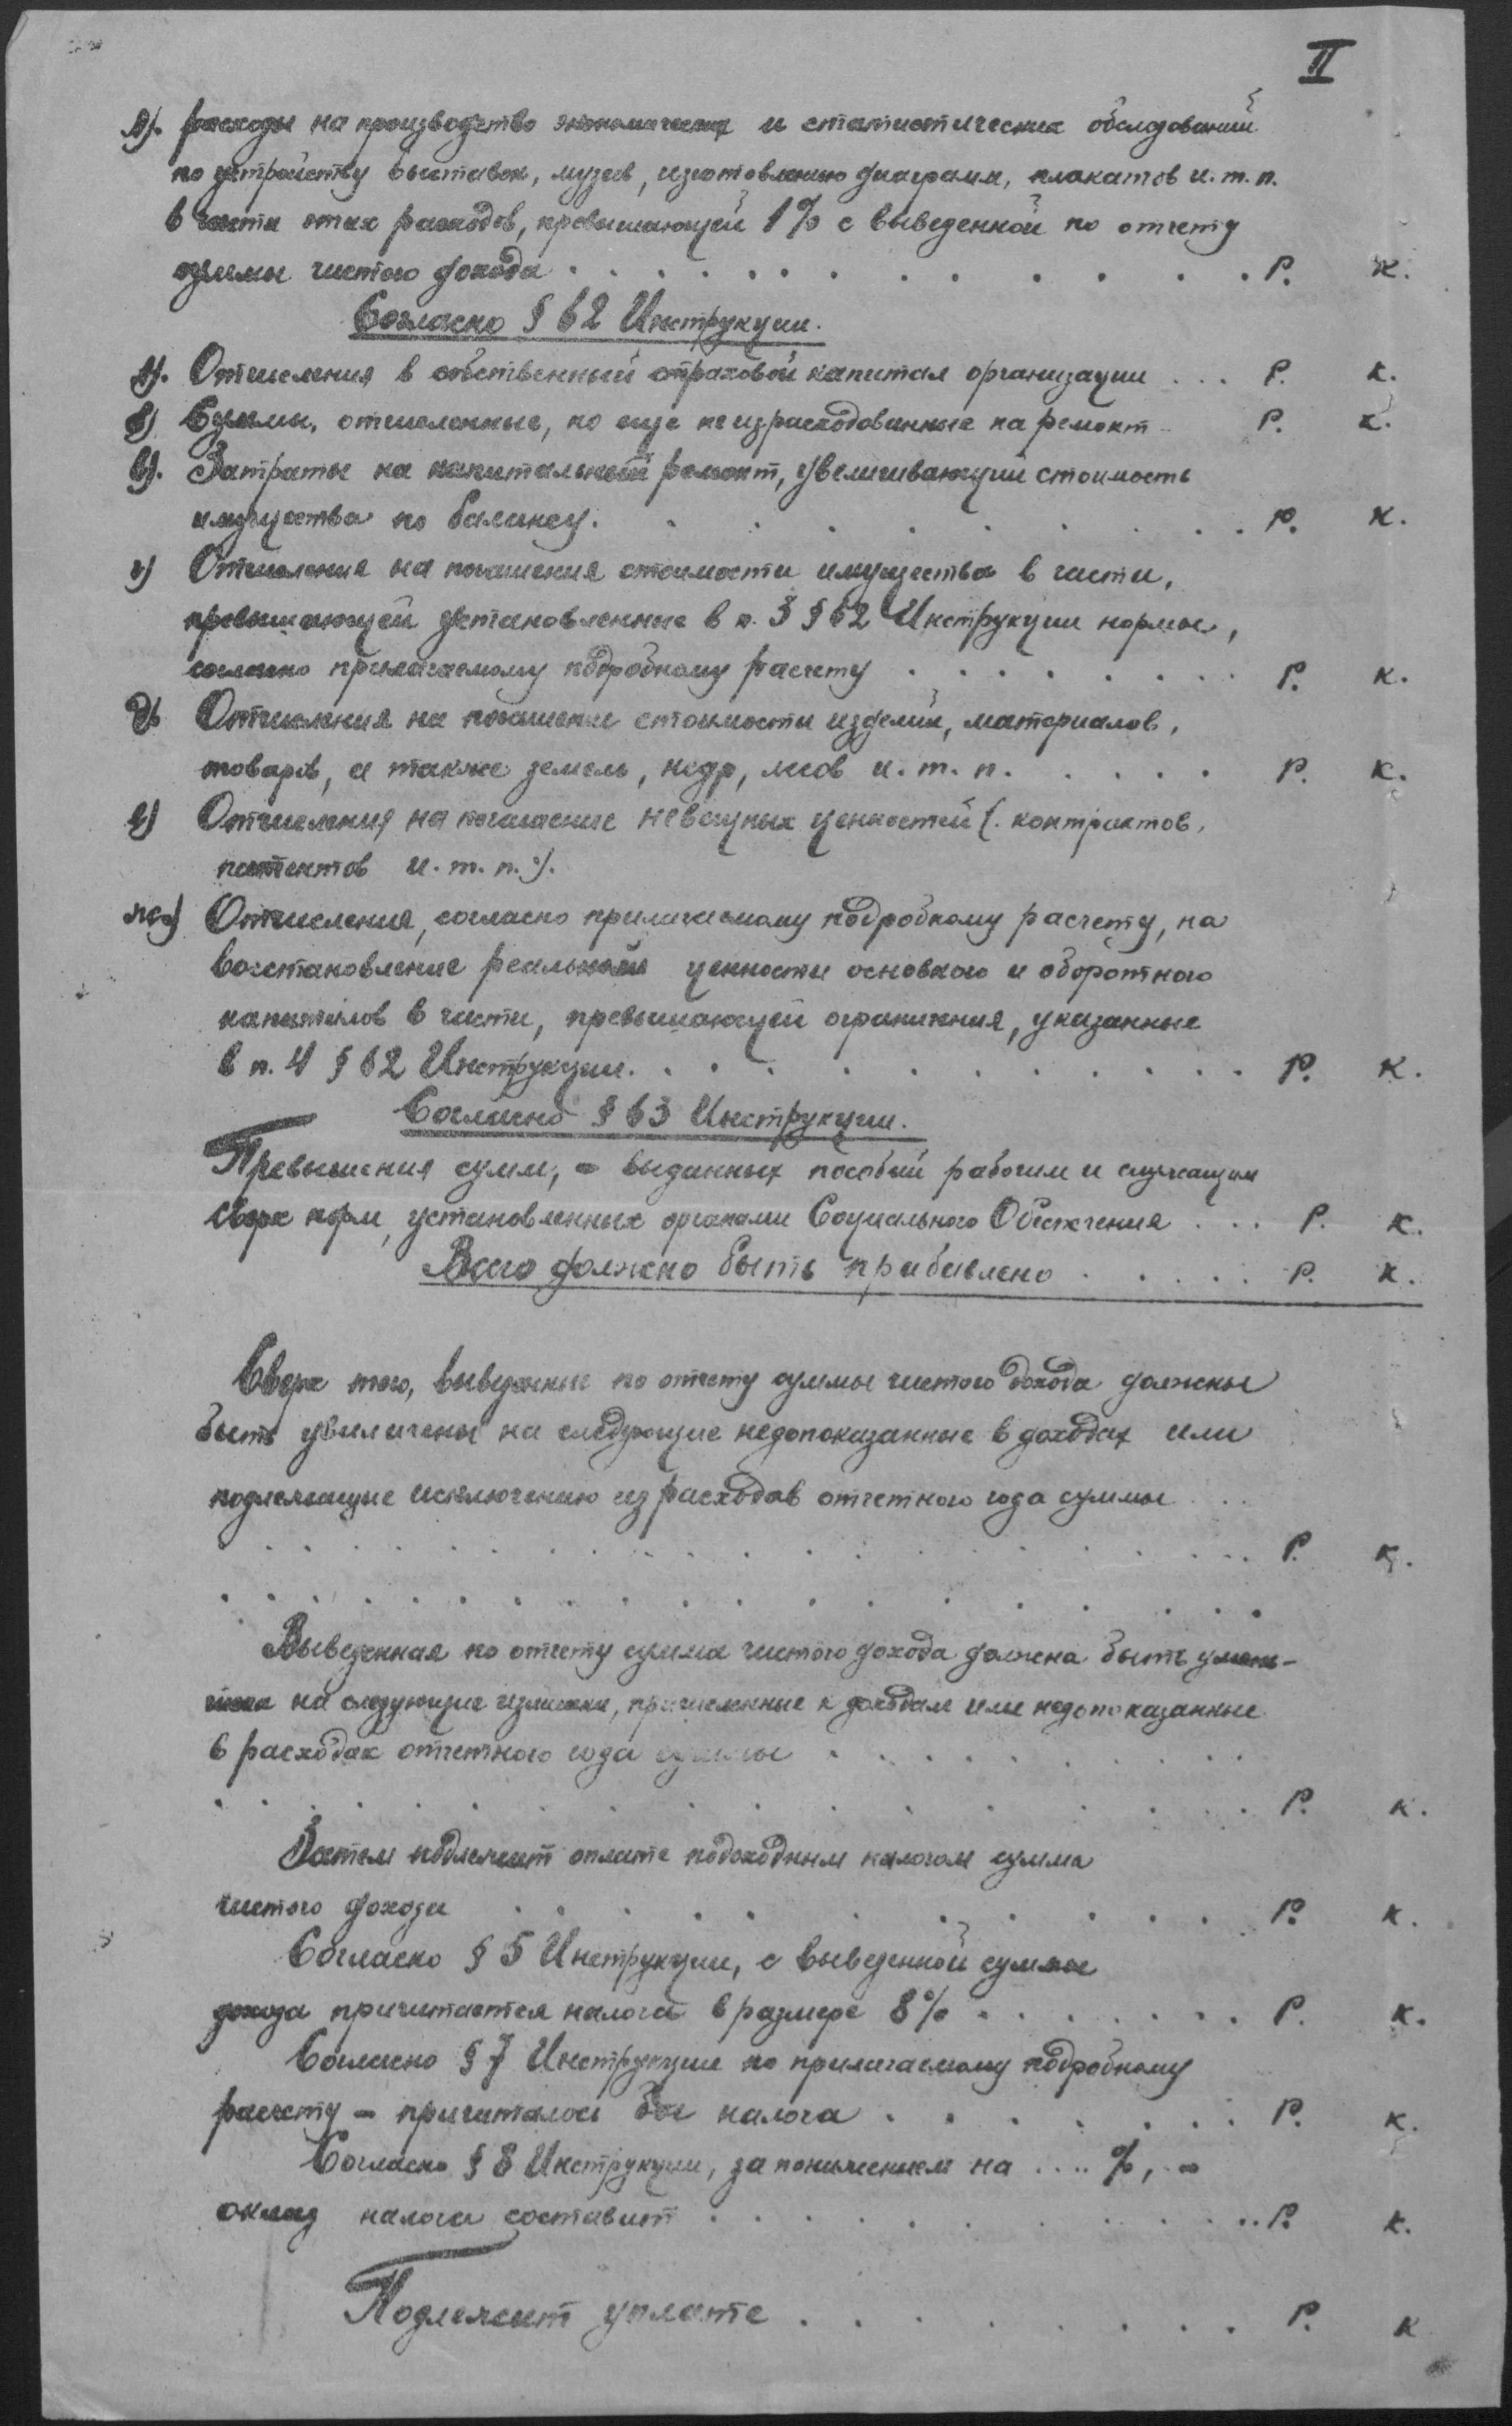 II
л). расходы на производство экономических и статистических обследований
по устройству выставок, музеев, изготовлению диаграмм, плакатов и. т. п.
в части этих расходов, превышающей 1% с выведенной по отчету
суммы чистого дохода . . . . . . . . . . . . . Р. К.
Согласно § 62 Инструкции.
а). Отчисления в собственный страховой капитал организации . . . Р. К.
б) Суммы, отчисленные, но еще неизрасходованные на ремонт Р. К.
в). Затраты на капитальный ремонт, увеличивающий стоимость
имущества по балансу. . . . . . . . . . Р. К.
г) Отчисления на погашения стоимости имущества в части,
превышающей установленные в п. 3 § 62 Инструкции нормы,
согласно прилагаемому подробному расчету . . . . . . . . Р. К.
д) Отчисления на погашение стоимости изделий, материалов,
товаров, а также земель, недр, лесов и. т. п. . . . . . Р. К.
е) Отчисления на погашение невещных ценностей (. контрактов,
патентов и. т. п. ).
ж) Отчисления, согласно прилагаемому подробному расчету, на
восстановление реальной ценности основного и оборотного
капиталов в части, превышающей ограничения, указанные
в п. 4 § 62 Инструкции. . . . . . . . . . . . . Р. К.
Согласно § 63 Инструкции.
Превышения сумм, = выданных пособий рабочим и служащим
сверх норм, установленных органами Социального Обеспечения . . . Р. К.
Всего должно быть прибавлено . . . . . . Р. К.
Сверх того, выведенные по отчету суммы чистого дохода должны
быть увеличены на следующие недопоказанные в доходах или
подлежащие исключению из расходов отчетного года суммы . .
. . . . . . . . . . . . . . . . . . . . Р. К.
. . . . . . . . . . . . . . . . . . . .
Выведенная по отчету сумма чистого дохода должна быть умень-
шена на следующие излишки, причисленные к доходам или недопоказанные
в расходах отчетного года суммы . . . . . . . . . .
. . . . . . . . . . . . . . . . . Р. К.
Затем подлежит оплате подоходным налогом сумма
чистого дохода . . . . . . . . . . . Р. К.
Согласно § 5 Инструкции, с выведенной суммы
дохода причитается налога в размере 8% . . . . . . . Р. К.
Согласно § 7 Инструкции по прилагаемому подробному
расчету – причиталось бы налога . . . . . . . . Р. К.
Согласно § 8 Инструкции, за понижением на .... %, =
оклад налога составит . . . . . . . . . . . . Р. К.
Подлежит уплате . . . . . . . . Р. К